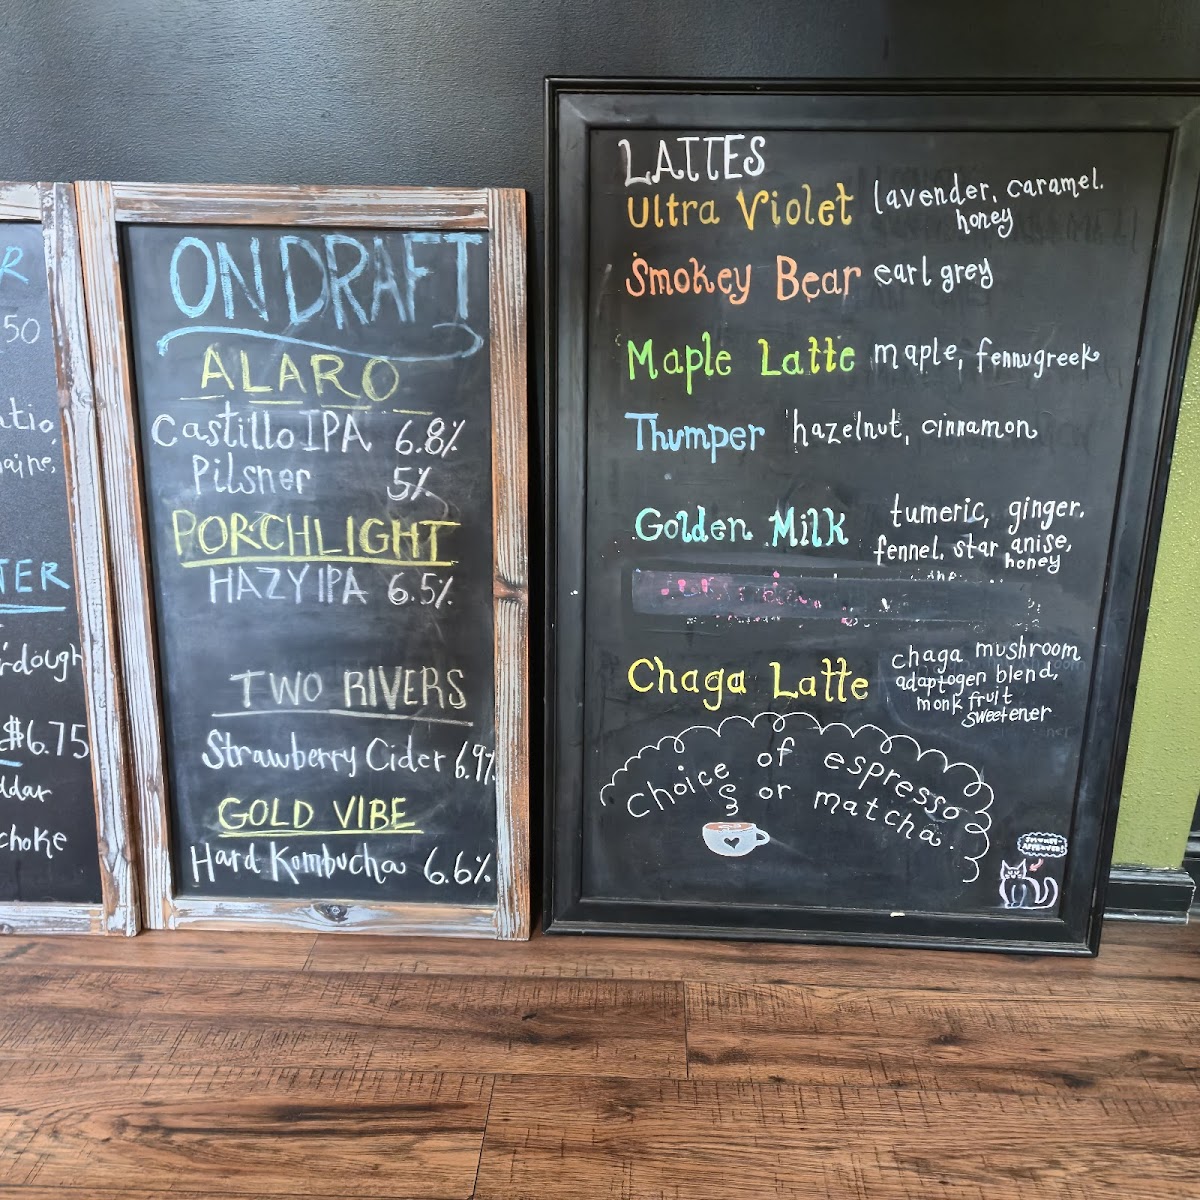 R
50
atio,
aine,
TER
rdough
$6.75
ddar
choke
ON DRAFT
ALARO
Castillo IPA 6.8%
Pilsner 5%
PORCHLIGHT
HAZY IPA 6.5%
TWO RIVERS
Strawberry Cider 6.9%
GOLD VIBE
Hard Kombucha 6.6%
LATTES
Ultra Violet lavender, caramel.
honey
Smokey Bear earl grey
Maple Latte maple, fennugreek
Thumper hazelnut, cinnamon
Golden Milk tumeric, ginger,
fennel, star anise,
honey
Chaga Latte chaga mushroom
adaptogen blend,
monk fruit
sweetener
Choice of espresso
or matcha.
SMOKEY
APPROVED!